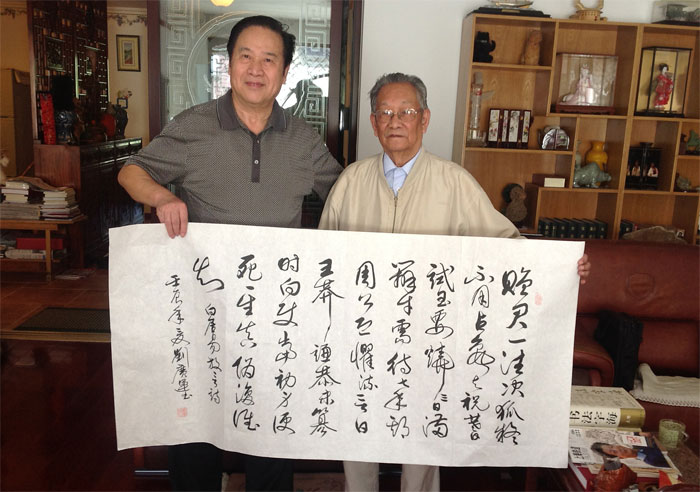 贈君一法决狐疑
不用占龟与祝蓍
试玉要燒三日满
辨材需待七年期
周公恐惧流言日
王莽谦恭未篡
时向使当初身便
死一生真偽復谁
知 白居易放言诗
壬辰年夏劉
书法字海